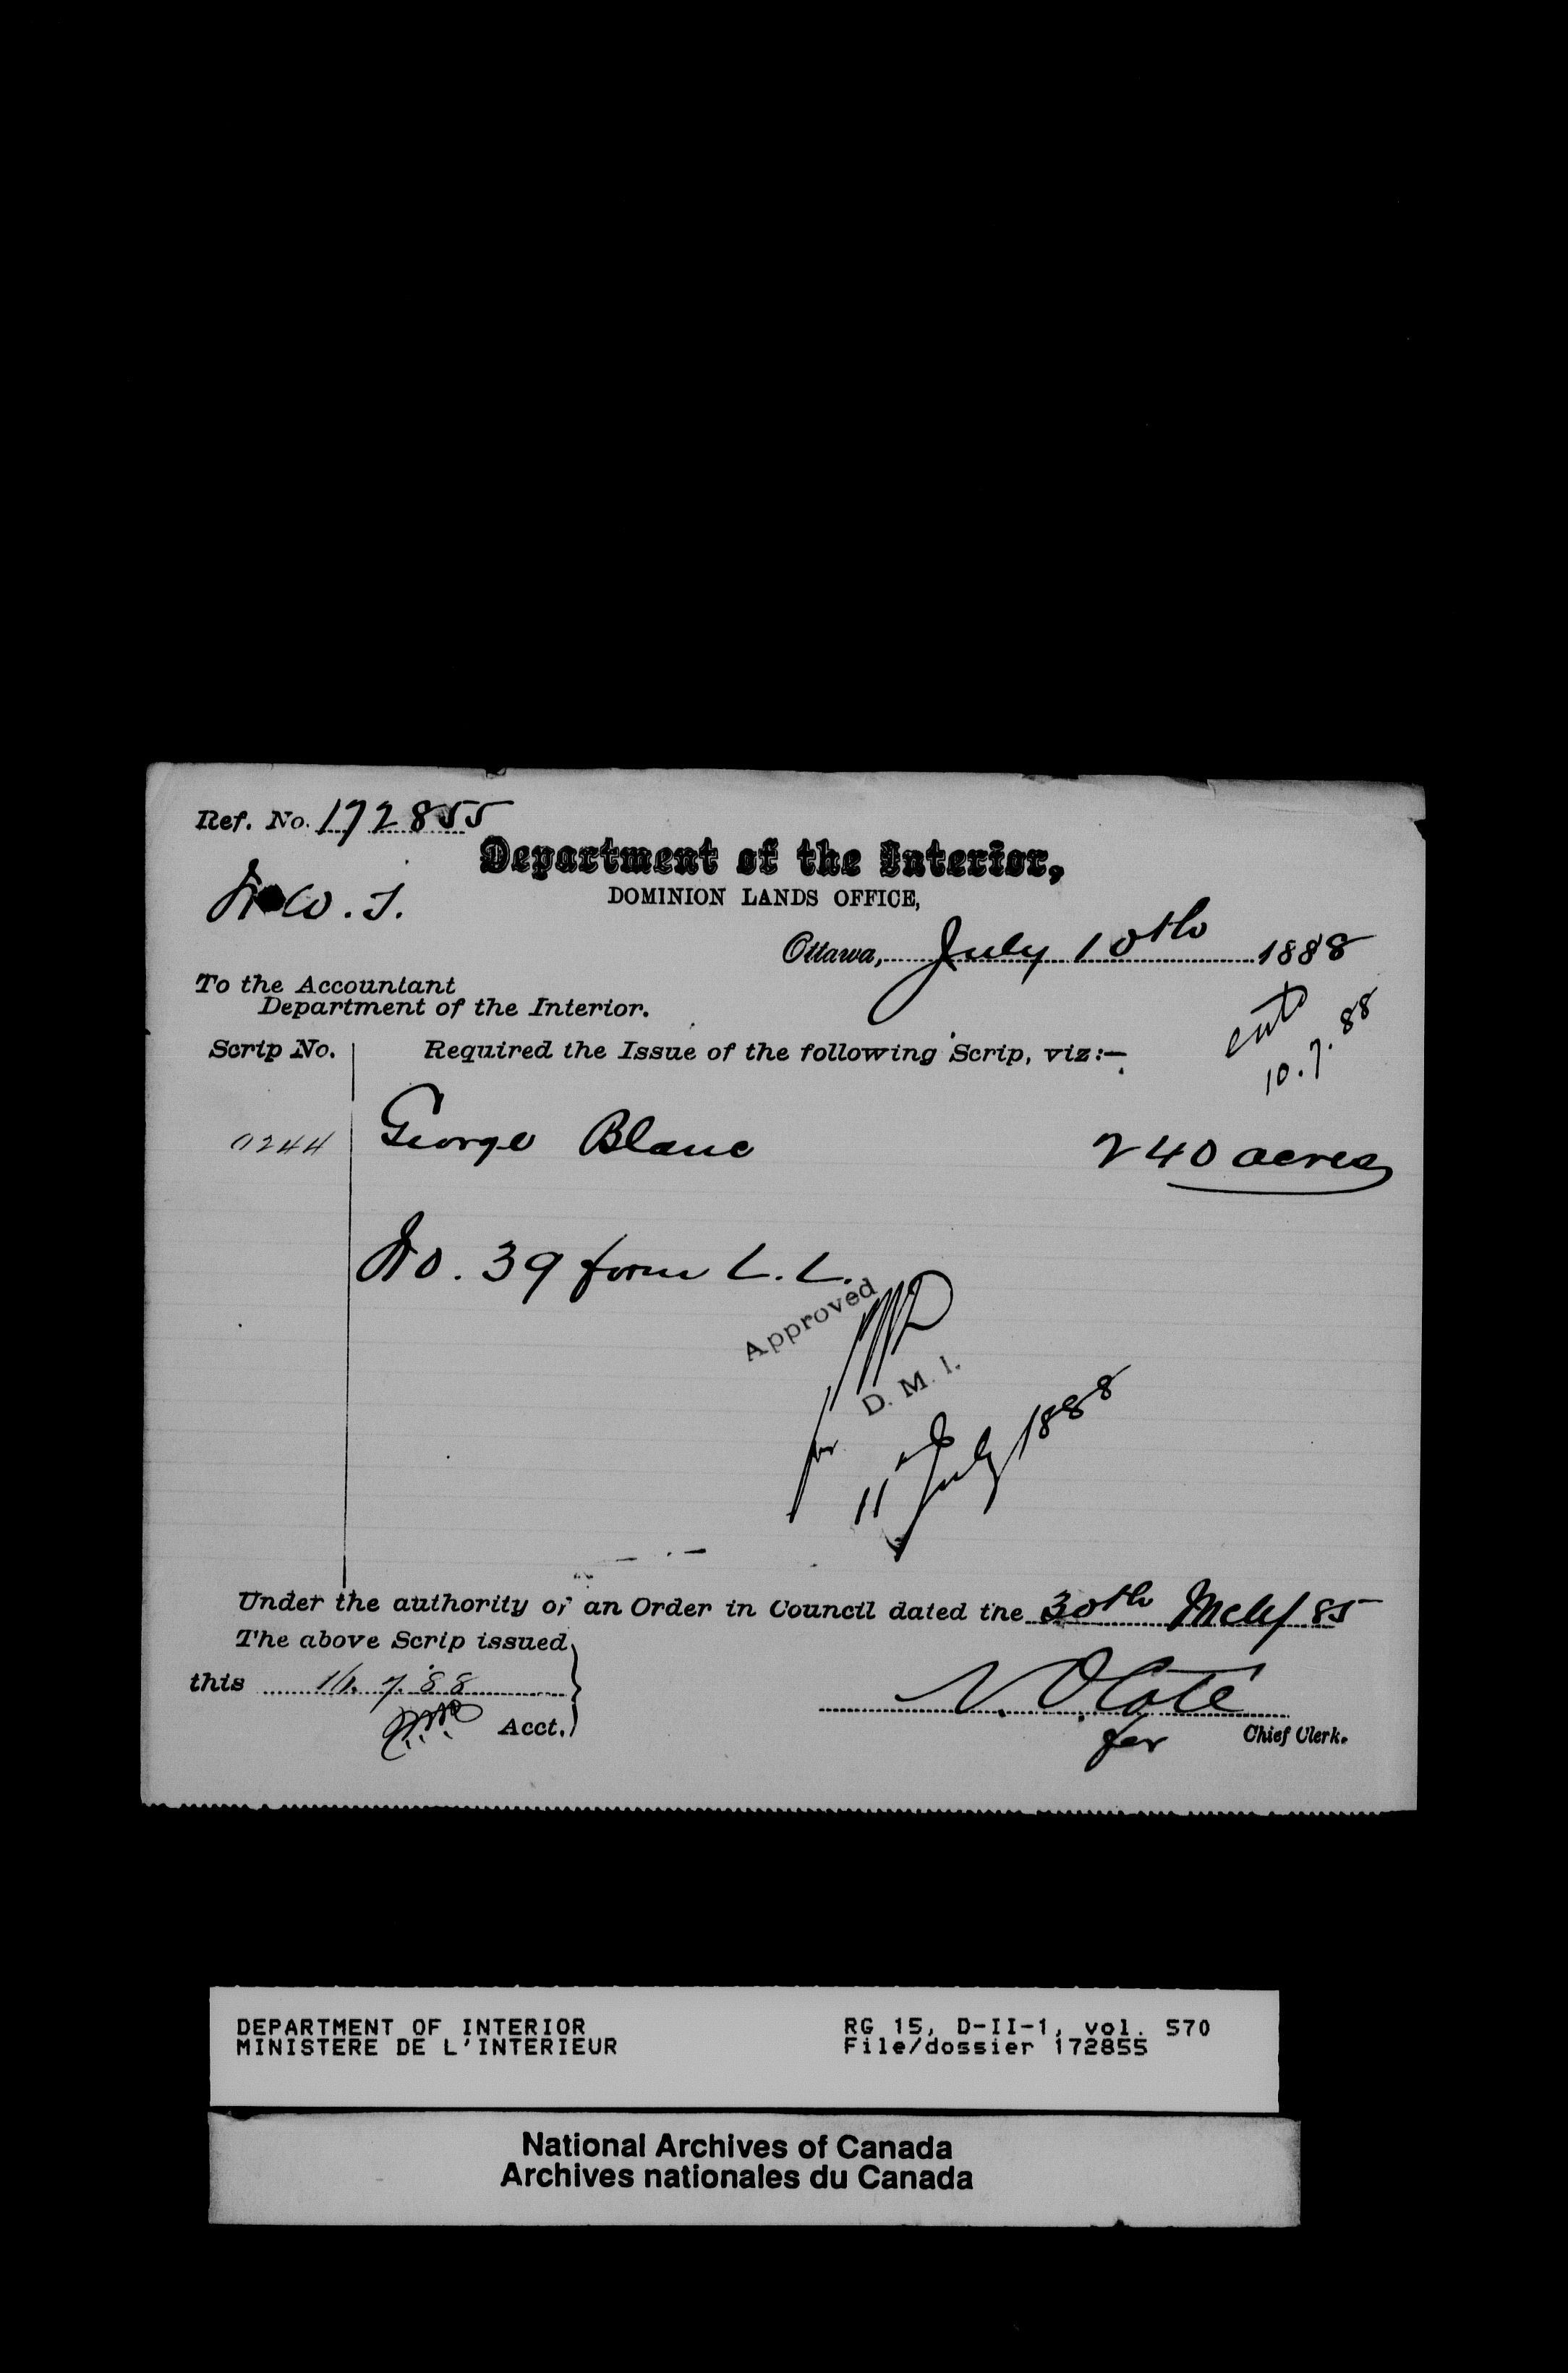 Ref. No. 172855
Department of the Interior,
N.W.T.
DOMINION LANDS OFFICE,
Ottawa, July 10th 1888
To the Accountant
Department of the Interior.
entd
10.7.88
Scrip No.
Required the Issue of the following Scrip, viz:—
0244 George Blanc 240 acres
No. 39 form L.L.
Approved
D. M. I.
for
11th July 1888
Under the authority of an Order in Council dated the 30th Mch/85
The above Scrip issued
this 11.7.88
Acct.
N. O. Coté
for Chief Clerk.
DEPARTMENT OF INTERIOR
MINISTERE DE L'INTERIEUR
RG 15, D-II-1, vol. 570
File/dossier 172855
National Archives of Canada
Archives nationales du Canada